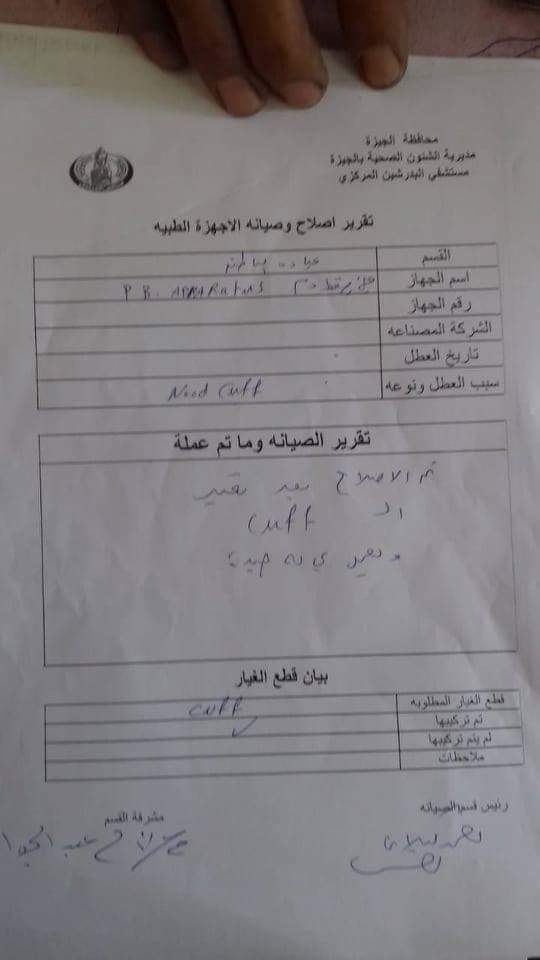 محافظة الجيزة
مديرية الشئون الصحية بالجيزة
مستشفي البدرشين المركزي
تقرير اصلاح وصيانه الاجهزة الطبيه
القسم عيادة باطنه
اسم الجهاز P B. APPARatus
رقم الجهاز
الشركة المصناعه
تاريخ العطل
سبب العطل ونوعه Need Cuff
تقرير الصيانه وما تم عملة
تم الاصلاح بعد تغيير
ال Cuff
جيدة
بيان قطع الغيار
قطع الغيار المطلوبه Cuff
تم تركيبها ✓
لم يتم تركيبها
ملاحظات
رئيس قسم الصيانه
مشرفة القسم